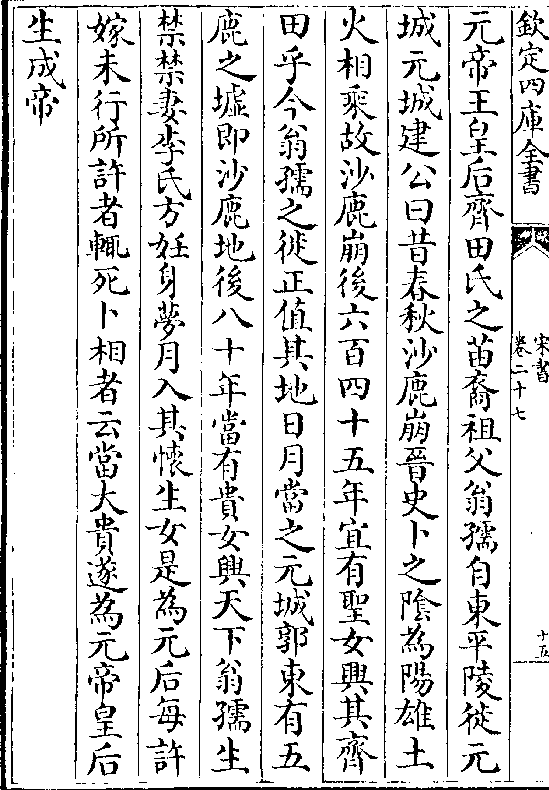 欽定四庫全書
宋書
卷二十七
十五
元帝王皇后齊田氏之苗裔祖父翁孺自東平陵徙元
城元城建公曰昔春秋沙鹿崩晉史卜之陰為陽雄土
火相乘故沙鹿崩後六百四十五年宜有聖女興其齊
田乎今翁孺之徙正值其地日月當之元城郭東有五
鹿之墟即沙鹿地後八十年當有貴女興天下翁孺生
禁禁妻李氏方妊身夢月入其懷生女是為元后每許
嫁未行所許者輒死卜相者云當大貴遂為元帝皇后
生成帝